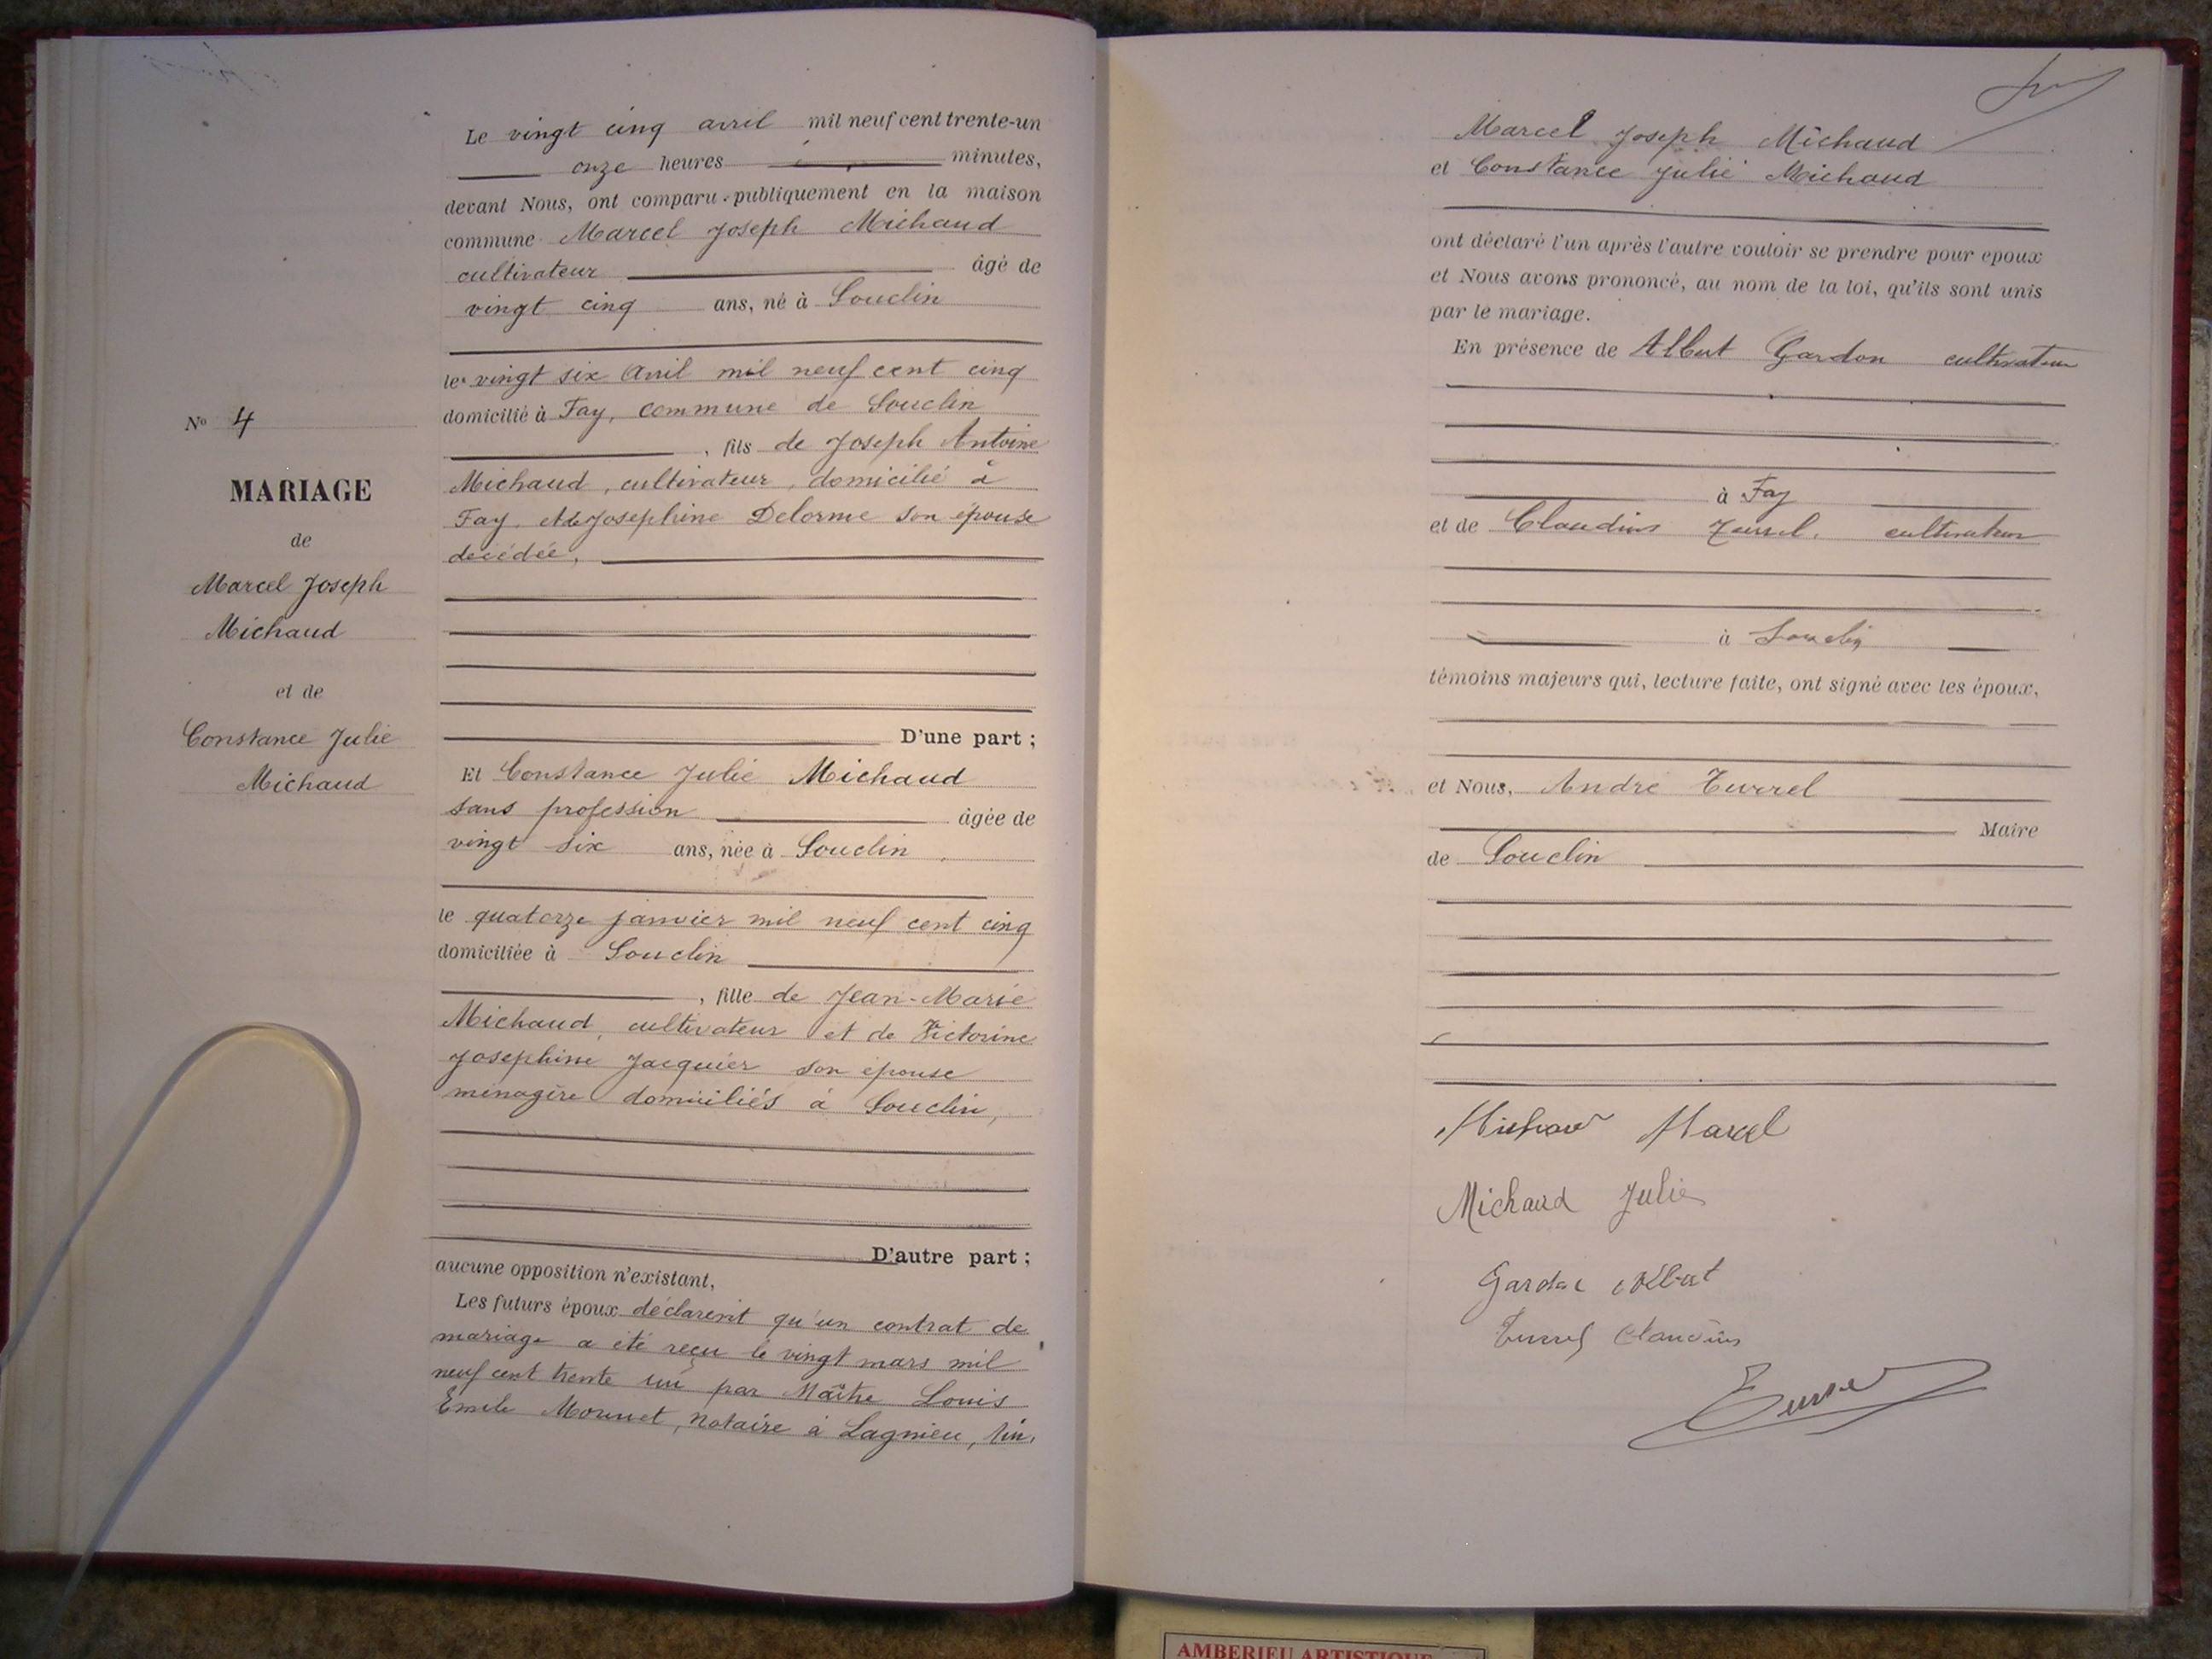 Le vingt cinq avril mil neuf cent trente-un
onze heures minutes,
devant Nous, ont comparu publiquement en la maison
commune Marcel Joseph Michaud
cultivateur âgé de
vingt cinq ans, né à Souclin
le vingt six Avril mil neuf cent cinq
domicilié à Fay, commune de Souclin
, fils de Joseph Antoine
Michaud, cultivateur, domicilié à
Fay, et Josephine Delorme son épouse
décédée,
D'une part ;
Et Constance Julie Michaud
sans profession âgée de
vingt six ans, née à Souclin
le quatorze janvier mil neuf cent cinq
domiciliée à Souclin
, fille de Jean-Marie
Michaud, cultivateur et de Victorine
Josephine Jacquier son épouse
ménagère domiciliés à Souclin,
D'autre part ;
aucune opposition n'existant,
Les futurs époux déclarent qu'un contrat de
mariage a été reçu le vingt mars mil
neuf cent trente un par Maître Louis
Emile Monnet, notaire à Lagnieu, Ain.
No 4
MARIAGE
de
Marcel Joseph
Michaud
et de
Constance Julie
Michaud
Marcel Joseph Michaud
et Constance Julie Michaud
ont déclaré l'un après l'autre vouloir se prendre pour epoux
et Nous avons prononcé, au nom de la loi, qu'ils sont unis
par le mariage.
En présence de Albert Gardon cultivateur
à Fay
et de Claudius Turrel, cultivateur
à Souclin
témoins majeurs qui, lecture faite, ont signé avec les époux,
et Nous, André Turrel
Maire
de Souclin
Michaud Marcel
Michaud Julie
Gardon Albert
Turrel Claudius
Turrel
AMBERIEU ARTISTIQUE